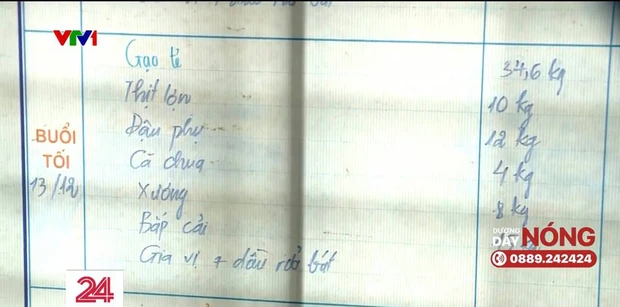 VTV1
Gạo tẻ 37,6 kg
Thịt lợn 10 kg
Đậu phụ 12 kg
Cà chua 4 kg
Xương 8 kg
Bắp cải
Gia vị + dầu rửa bát
BUỔI
TỐI
13/12
24
ĐƯỜNG
DÂY
NÓNG
0889.242424